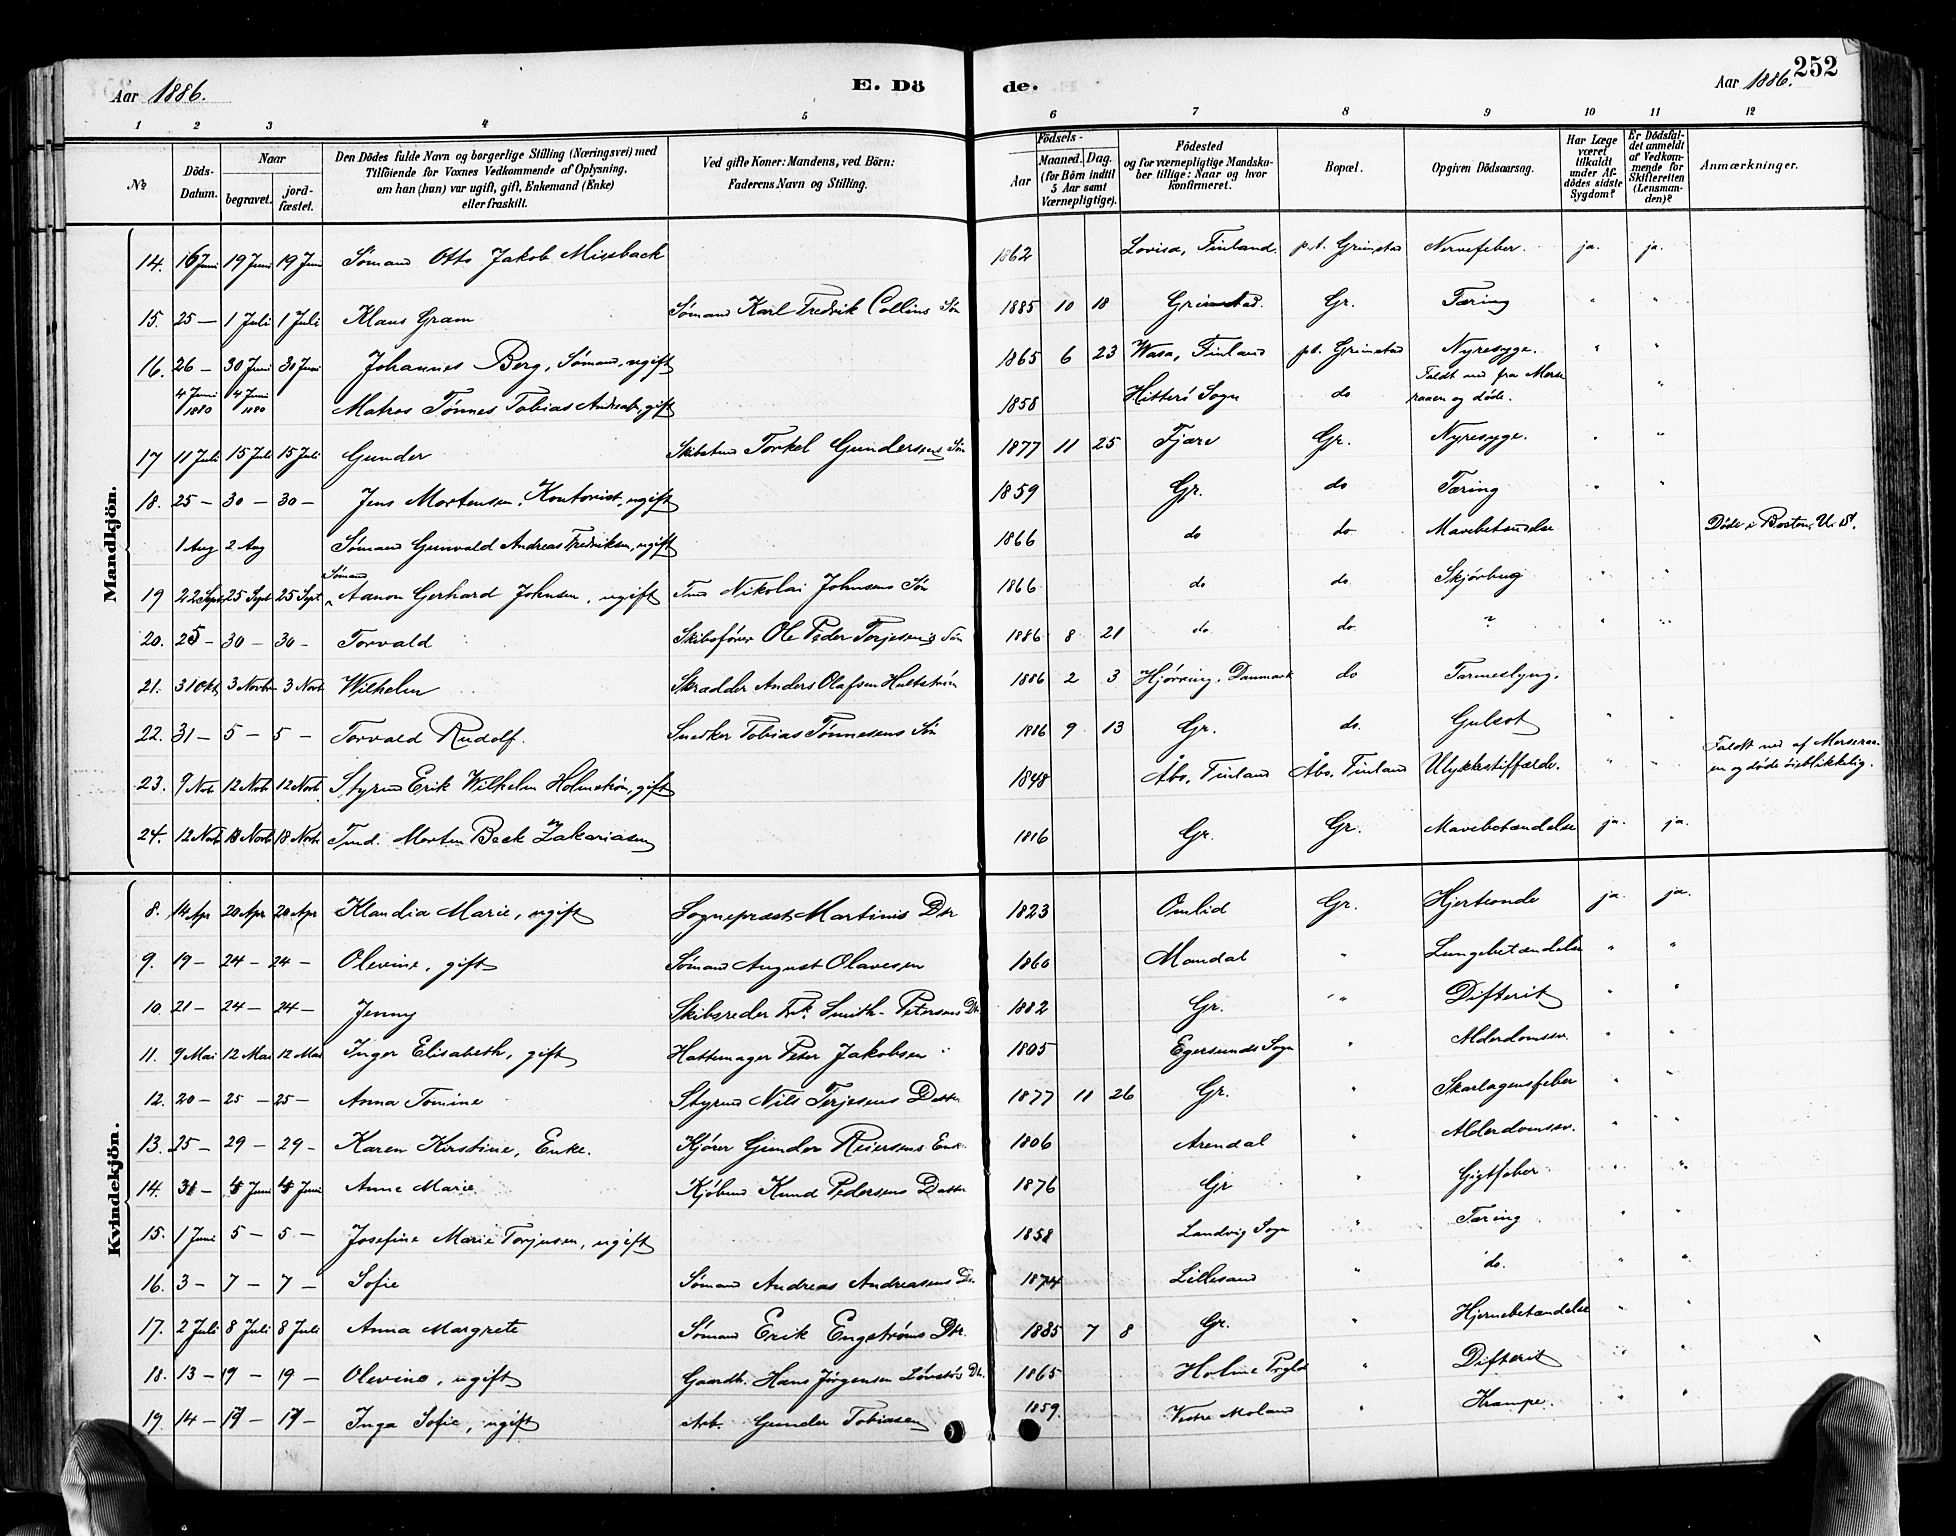 Aar 1886. E. Dö de. Aar 1886. 252
1 2 3 4 5 6 7 8 9 10 11 12
No Döds-Datum. Naar begravet. jordfæstet. Den Dödes fulde Navn og borgerlige Stilling (Næringsvei) med Tilföiende for Voxnes Vedkommende af Oplysning, om han (hun) var ugift, gift, Enkemand (Enke) eller fraskilt. Ved gifte Koner: Mandens, ved Börn: Faderens Navn og Stilling. Födsels- Aar Maaned. Dag. (for Börn indtil 5 Aar samt Værnepligtige). Födested og for værnepligtige Mandskaber tillige: Naar og hvor konfirmeret. Bopæl. Opgiven Dödsaarsag. Har Læge været tilkaldt under Afdödes sidste Sygdom? Er Dödsfaldet anmeldt af Vedkommende for Skifteretten (Lensmanden)? Anmærkninger.
Mandkjön.
14. 16 Juni 19 Juni 19 Juni Sømand Otto Jakob Missback 1862 Lovisa, Finland. p.t. Grimstad Nervefeber. ja. ja.
15. 25 — 1 Juli 1 Juli Klaus Gram Sømand Karl Fredrik Collins Søn 1885 10 18 Grimstad. Gr. Tæring " "
16. 26 — 30 Juni 30 Juni Johannes Berg, Sømand, ugift 1865 6 23 Wasa, Finland p.t. Grimstad Nyresyge. " "
4 Juni 1880 4 Juni 1880 Matros Tønnes Tobias Andreas, gift 1858 Hitterö Sogn do Faldt ned fra Merseraaen og døde. "
17 11 Juli 15 Juli 15 Juli Gunder Skibstmd Torkel Gundersens Søn 1877 11 25 Fjære Gr. Nyresyge. " "
18. 25 — 30 — 30 — Jens Mortensen, Kontorist, ugift 1859 Gr. do Tæring " "
1 Aug 2 Aug Sømand Gunvald Andreas Fredriksen, ugift 1866 do do Mavebetændelse Døde i Boston, U.S.
19 22 Sept 25 Sept 25 Sept Sømand Aanon Gerhard Johnsen, ugift Tmd Nikolai Johnsens Søn 1866 do do. Skjørbug " "
20. 25 — 30 — 30 — Torvald Skibsfører Ole Peder Terjesens Søn 1886 8 21 do. do. ? " "
21. 31 Okt 3 Novb 3 Novb Wilhelm Skrædder Anders Olafsen Hultstrøm 1886 2 3 Hjørring, Danmark do Tarmeslyng.
22. 31 — 5 — 5 — Torvald Rudolf. Snedker Tobias Tønnesens Søn 1886 9 13 Gr. do. Gulsot " "
23. 9 Nov 12 Nov 12 Nov Styrmd Erik Wilhelm Holmstrøm, gift 1848 Åbo, Finland Åbo, Finland Ulykkestilfælde. " " Faldt ned af Merseraaen og døde øieblikkelig.
24. 12 Novb 18 Novb 18 Novb Tmd. Morten Beck Zakariasen 1816 Gr. Gr. Mavebetændelse ja. ja.
Kvindekjön.
8. 14 Apr 20 Apr 20 Apr Klaudia Marie, ugift Sogneprest Martinis Dtr 1823 Omlid Gr. Hjerteonde ja. ja.
9. 19 — 24 — 24 — Olevine, gift Sømand August Olavesen 1860 Mandal " Lungebetændelse " "
10. 21 — 24 — 24 — Jenny Skibsreder Frk. Smith-Petersens Dtr. 1882 Gr. " Difterit " "
11. 9 Mai 12 Mai 12 Mai Inger Elisabeth, gift Hattemager Peter Jakobsen 1805 Egersunds Sogn " Alderdomssv. " "
12. 20 — 25 — 25 — Anna Tomine Styrmd Nils Terjesens Datter 1877 11 26 Gr. " Skarlagensfeber " "
13. 25 — 29 — 29 — Karen Kirstine, Enke. Kjører Gunder Reiersens Enke 1806 Arendal " Alderdomssv. " "
14. 31 — 4 Juni 4 Juni Anne Marie Kjøbmd Knud Pedersens Datter 1876 Gr " Gigtfeber " "
15. 1 Juni 5 — 5 — Josefine Marie Torjusen, ugift 1858 Landvig Sogn " Tæring " "
16. 3 — 7 — 7 — Sofie Sømand Andreas Andreasens Dtr. 1874 Lillesand " do. " "
17. 2 Juli 8 Juli 8 Juli Anna Margrete Sømand Erik Engstrøms Dtr. 1885 7 8 Gr. " Hjernebetændelse " "
18. 13 — 19 — 19 — Olevine, ugift Gaardbr. Hans Jørgensen Løvstøs Dtr. 1865 Holme Prgld " Difterit " "
19. 14 — 17 — 17 — Inga Sofie, ugift Arb. Gunder Tobiasen 1859. Vestre Moland " Krampe. " "